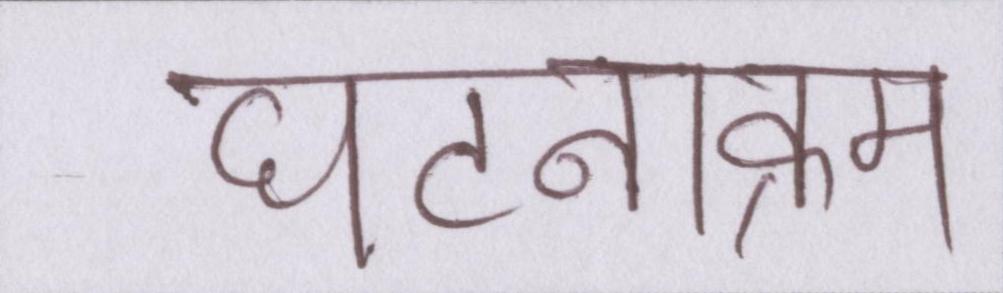 घटनाक्रम